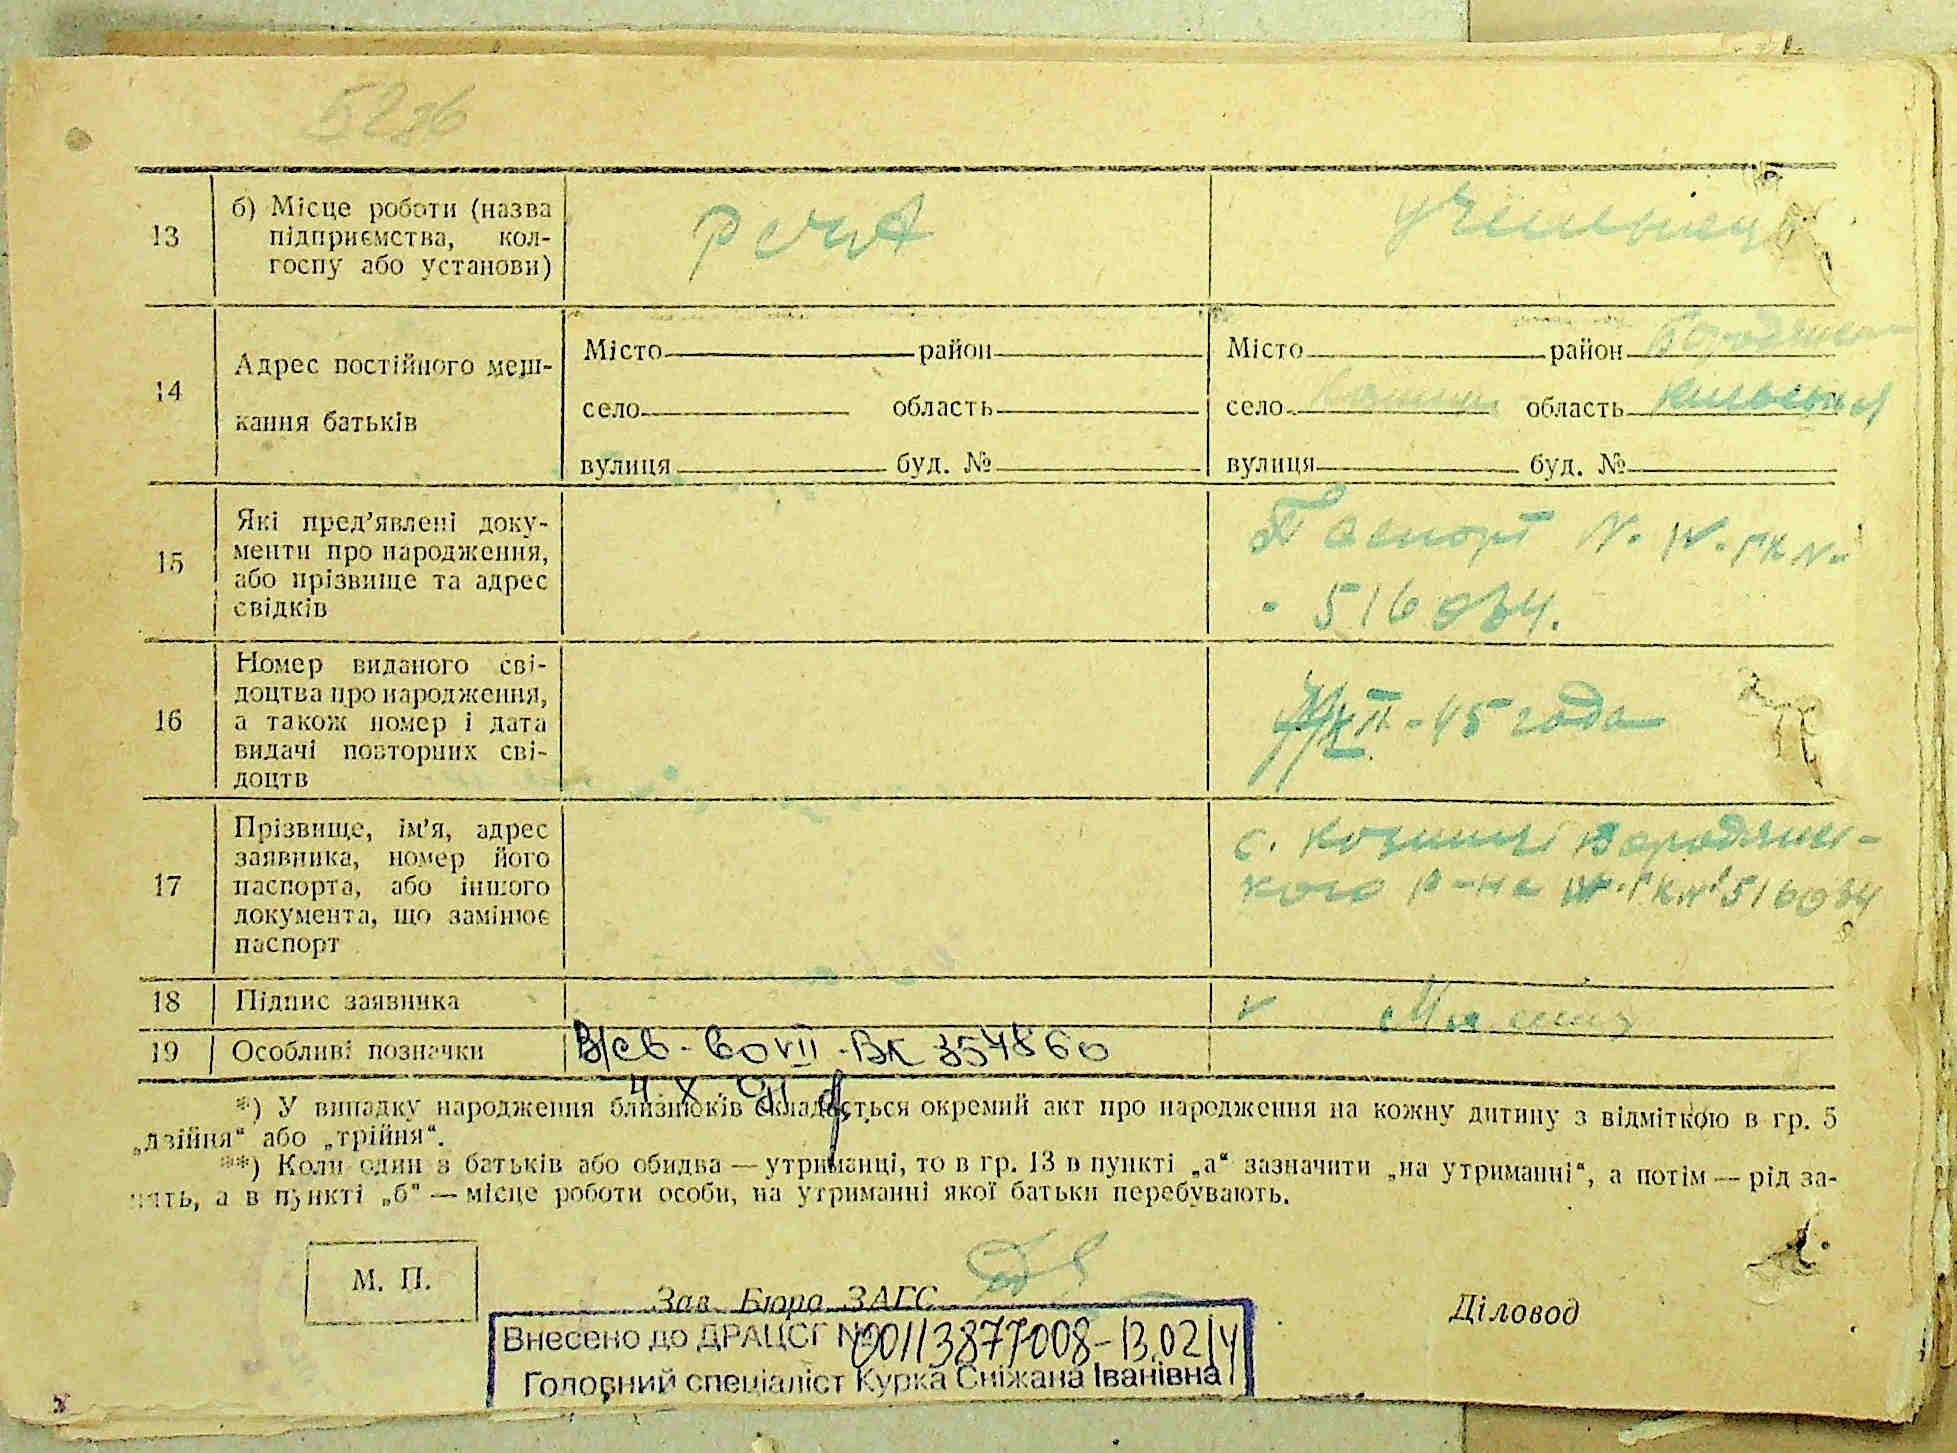 13
б) Місце роботи (назва
підприємства, кол-
госпу або установи)
14
Адрес постійного меш-
кання батьків
Місто район
село область
вулиця буд. №
Місто район
село область
вулиця буд. №
15
Які пред’явлені доку-
менти про народження,
або прізвище та адрес
свідків
Паспорт N. IV. ГК №
516034.
16
Номер виданого сві-
доцтва про народження,
а також номер і дата
видачі повторних сві-
доцтв
45 года
17
Прізвище, ім’я, адрес
заявника, номер його
паспорта, або іншого
документа, що замінює
паспорт
с.
кого р-на IV. ГК № 516034
18
Підпис заявника
19
Особливі позначки
VII - БК 354860
4 X 91
*) У випадку народження близнюків складається окремий акт про народження на кожну дитину з відміткою в гр. 5
„двійня“ або „трійня“.
**) Коли один з батьків або обидва — утриманці, то в гр. 13 в пункті „а“ зазначити „на утриманні“, а потім — рід за-
нять, а в пункті „б“ — місце роботи особи, на утриманні якої батьки перебувають.
М. П.
Зав. Бюро ЗАГС
Діловод
Внесено до ДРАЦСГ № 00113877008-13.02.14
Головний спеціаліст Курка Сніжана Іванівна